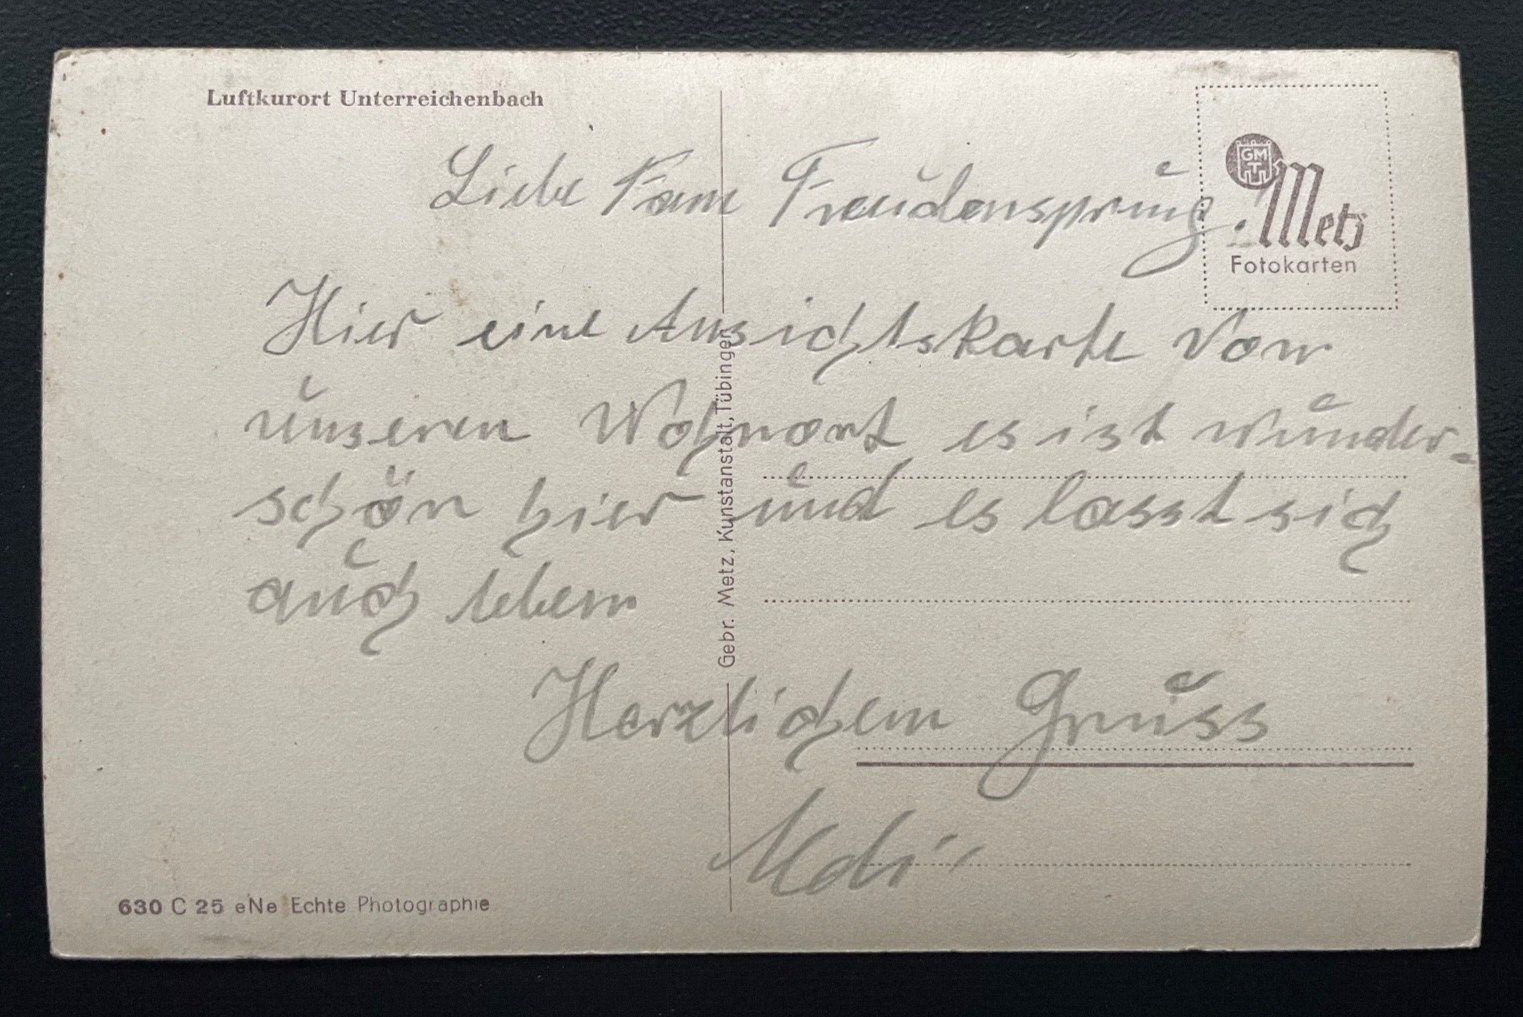 Luftkurort Unterreichenbach
GMT
Metz
Fotokarten
Liebe Fam Freudensprung.
Hier eine Ansichtskarte Vom
unseren Wohnort es ist wunder=
schön hier und es lasst sich
auch leben
Herzlichem Gruss
Gebr. Metz, Kunstanstalt, Tübingen
630 C 25 eNe Echte Photographie